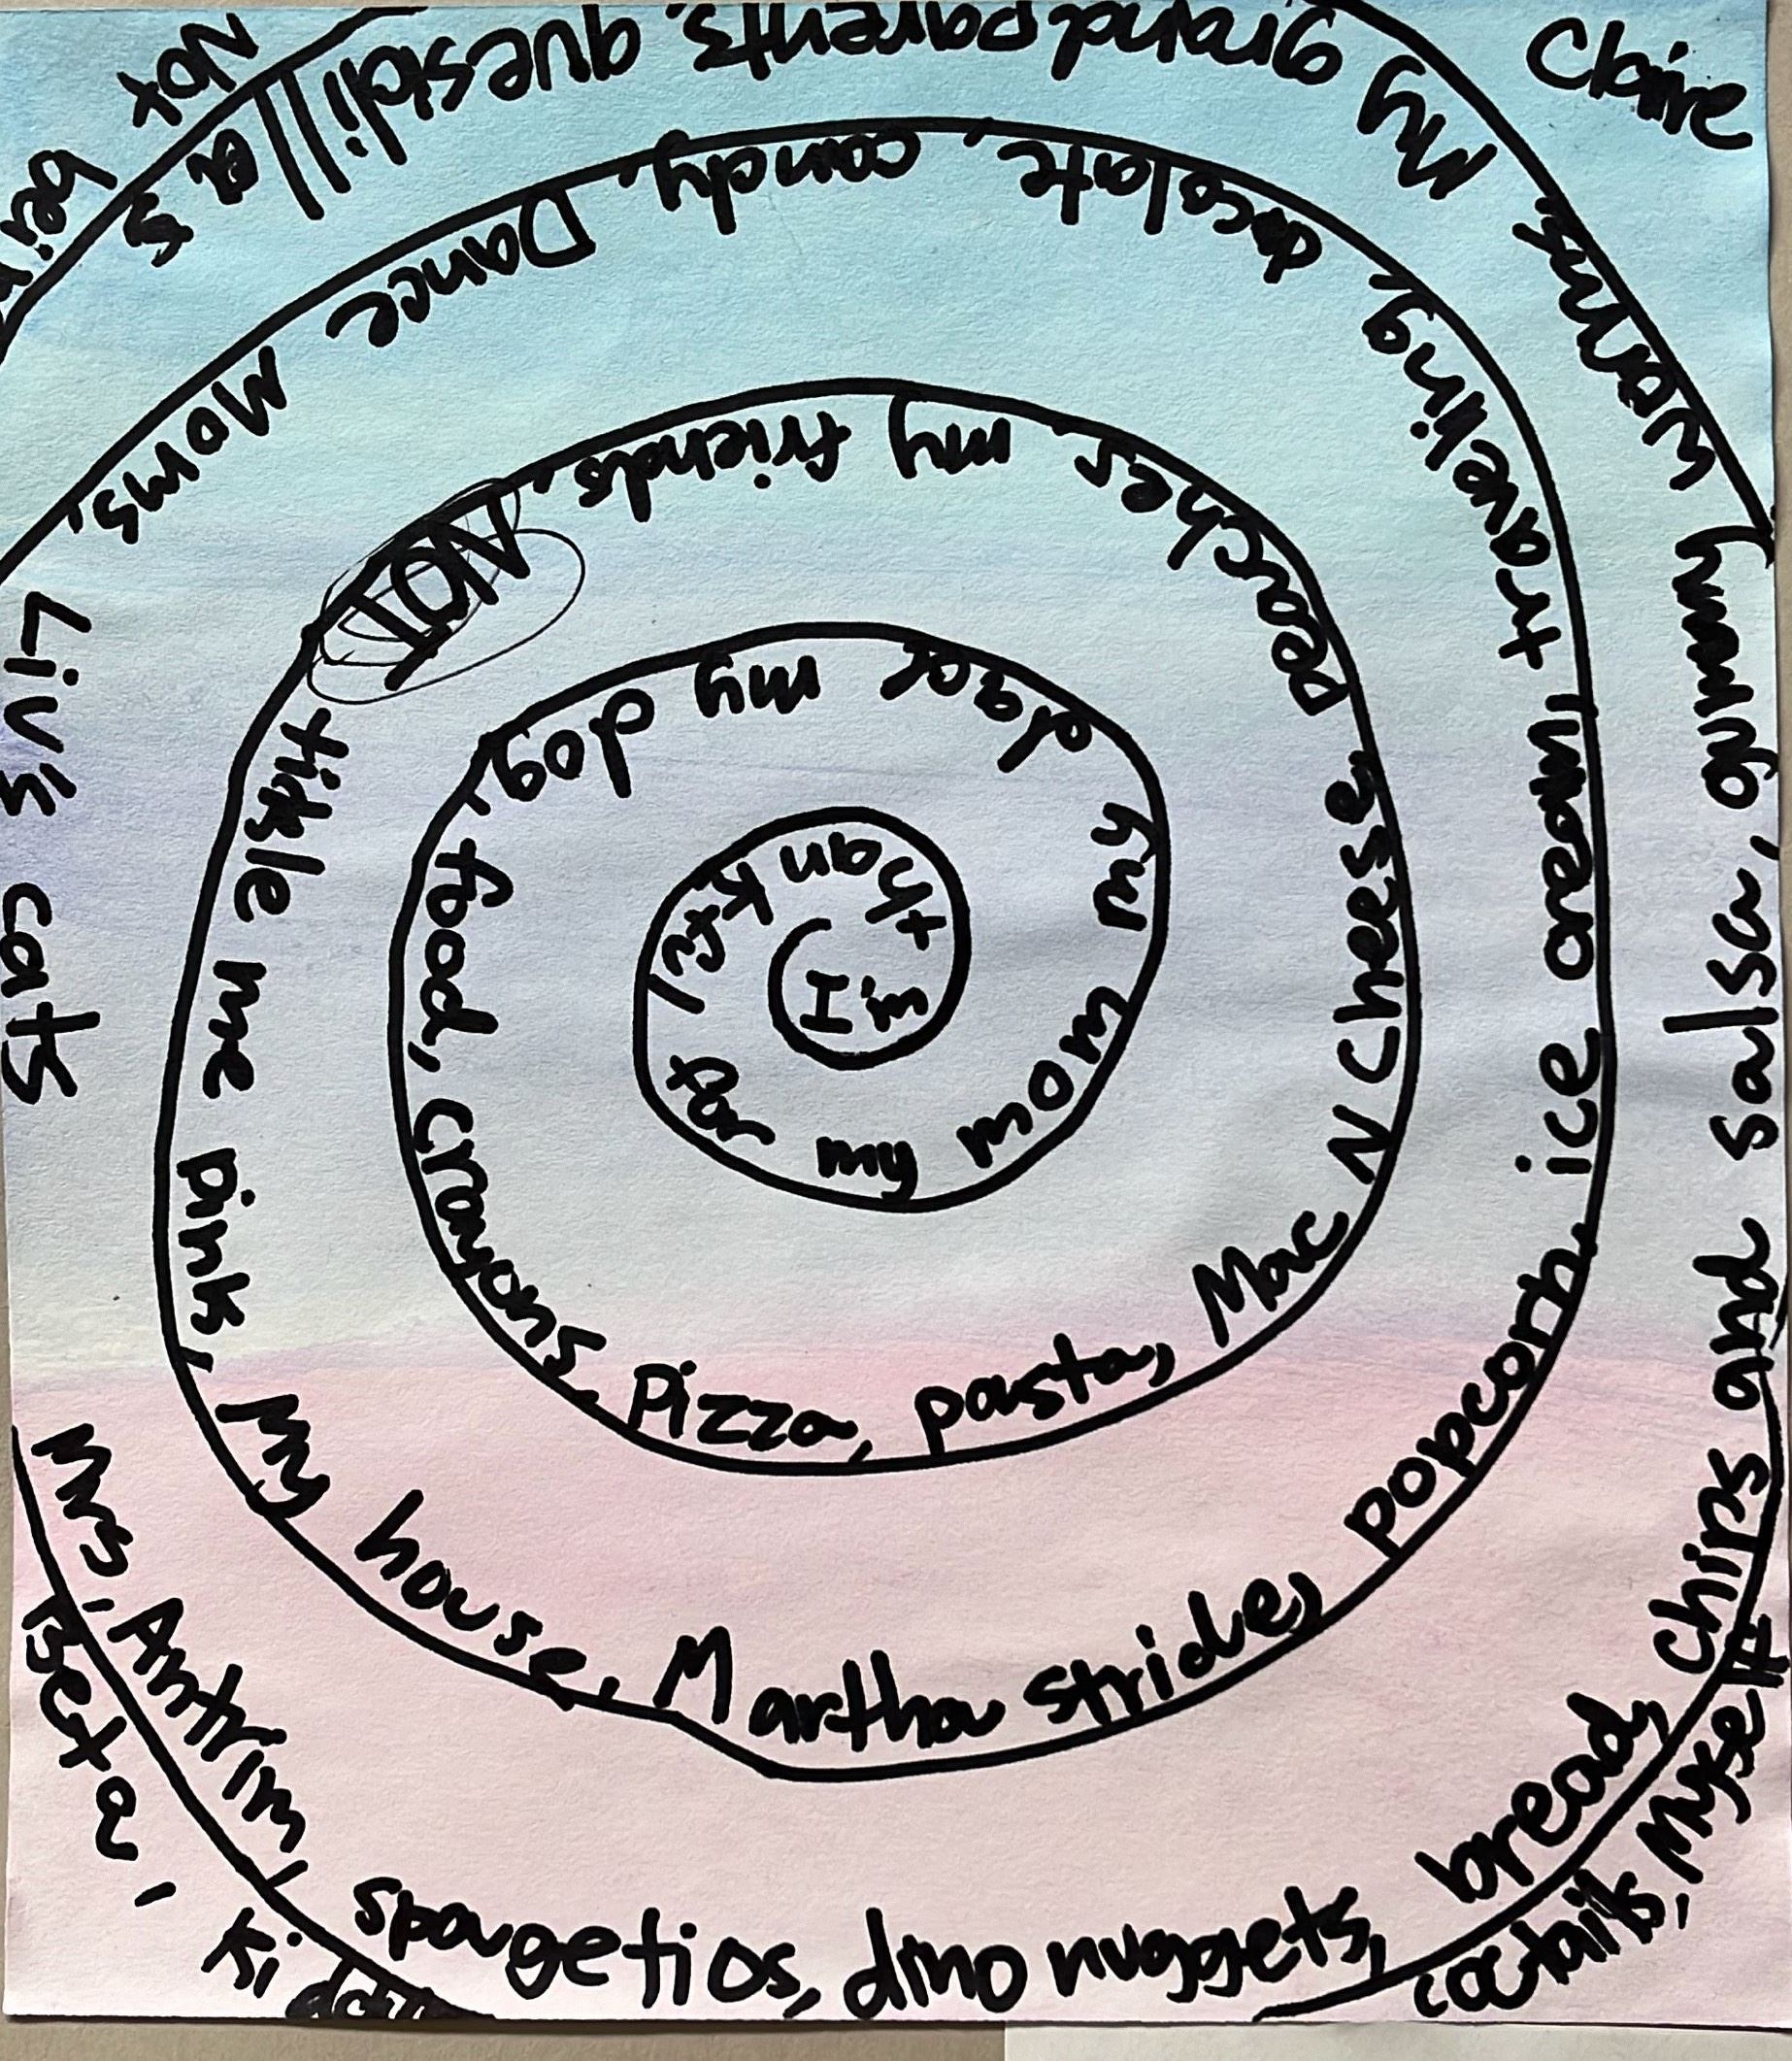 I'm
thankful
for my mom
my dad my dog,
food, crayons, Pizza, pasta, Mac N Cheese,
peaches, my friends, NOT
tikle me pink, My house, Martha stride, popcorn, ice cream,
traveling, chocolate, candy, Dance Moms,
Liv's cats
Mrs. Antrim, spagetios, dino nuggets, bread, chips and salsa, gummy worms,
My grandparents, quesdillas
Not
Beta,
coctails, Myself
Claire